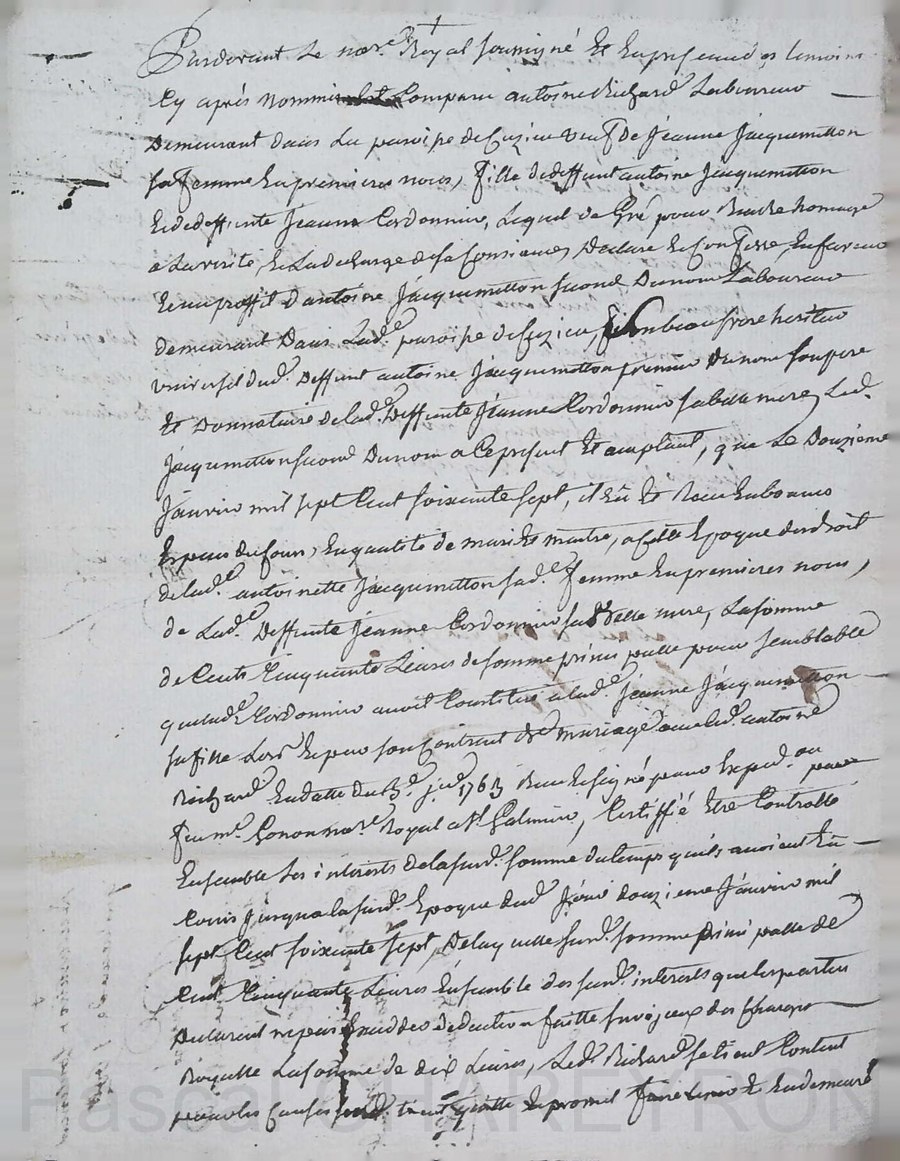 Pardevant Le nore Royal soussigné Et En presence des temoins
Cy après nommés Comparu antoine Richard Laboureur
Demeurant dans La paroisse de Cuzieu veuf de Jeanne Jacquemetton
sa femme En premieres noces, fille de deffunt antoine Jacquemetton
Et de deffunte Jeanne Cordonnier, Lequel de Gré pour Rendre homage
a La verité, Et La decharge de sa Consience, Declare Et Confesse, En faveur
Et au proffit d'antoine Jacquemetton second Du nom Laboureur
demeurant Dans Lade paroisse de Cuzieu, son beau frere heritier
universel dud. Deffunt antoine Jacquemetton premier Du nom son pere
Et Donnataire de lad. Deffunte Jeanne Cordonnier sa belle mere, Led.
Jacquemetton second Du nom a Ce present Et acceptant, que Le Douzieme
Janvier mil sept Cent soixante sept, il Eu Et Receu En bonnes
Especes du Cours, En qualité de mari Et maitre, a Cette Epoque des droits
de lade antoinette Jacquemetton sade femme En premieres noces,
de Lade Deffunte Jeanne Cordonnier sa Belle mere, La somme
de Cents Cinquante Livres de somme principalle pour semblable
que lade Cordonnier avoit Constitué a lade Jeanne Jacquemetton
sa fille Lors Et par son Contrat de Mariage avec led. antoine
Richard En datte du 1763 Receu Et signé pour Exped. on par
feu me. Gonon nore Royal a St. Galmier, Certiffié Etre Controllé
Ensemble Les interets de la susd. somme du temps quils avoient Eu
Cours jusqua la susd. Epoque dud. jour douzieme Janvier mil
sept Cent soixante sept, De laquelle susd. somme principalle de
Cent Cinquante Livres Ensemble des susd. interets que les parties
Declarent deduction faitte des Charges
Royalle La somme de dix Livres, Led. Richard se tient Content
pour les Causes tient quitte Et promet faire tenir Et En demeure
Pascal CHAREYRON